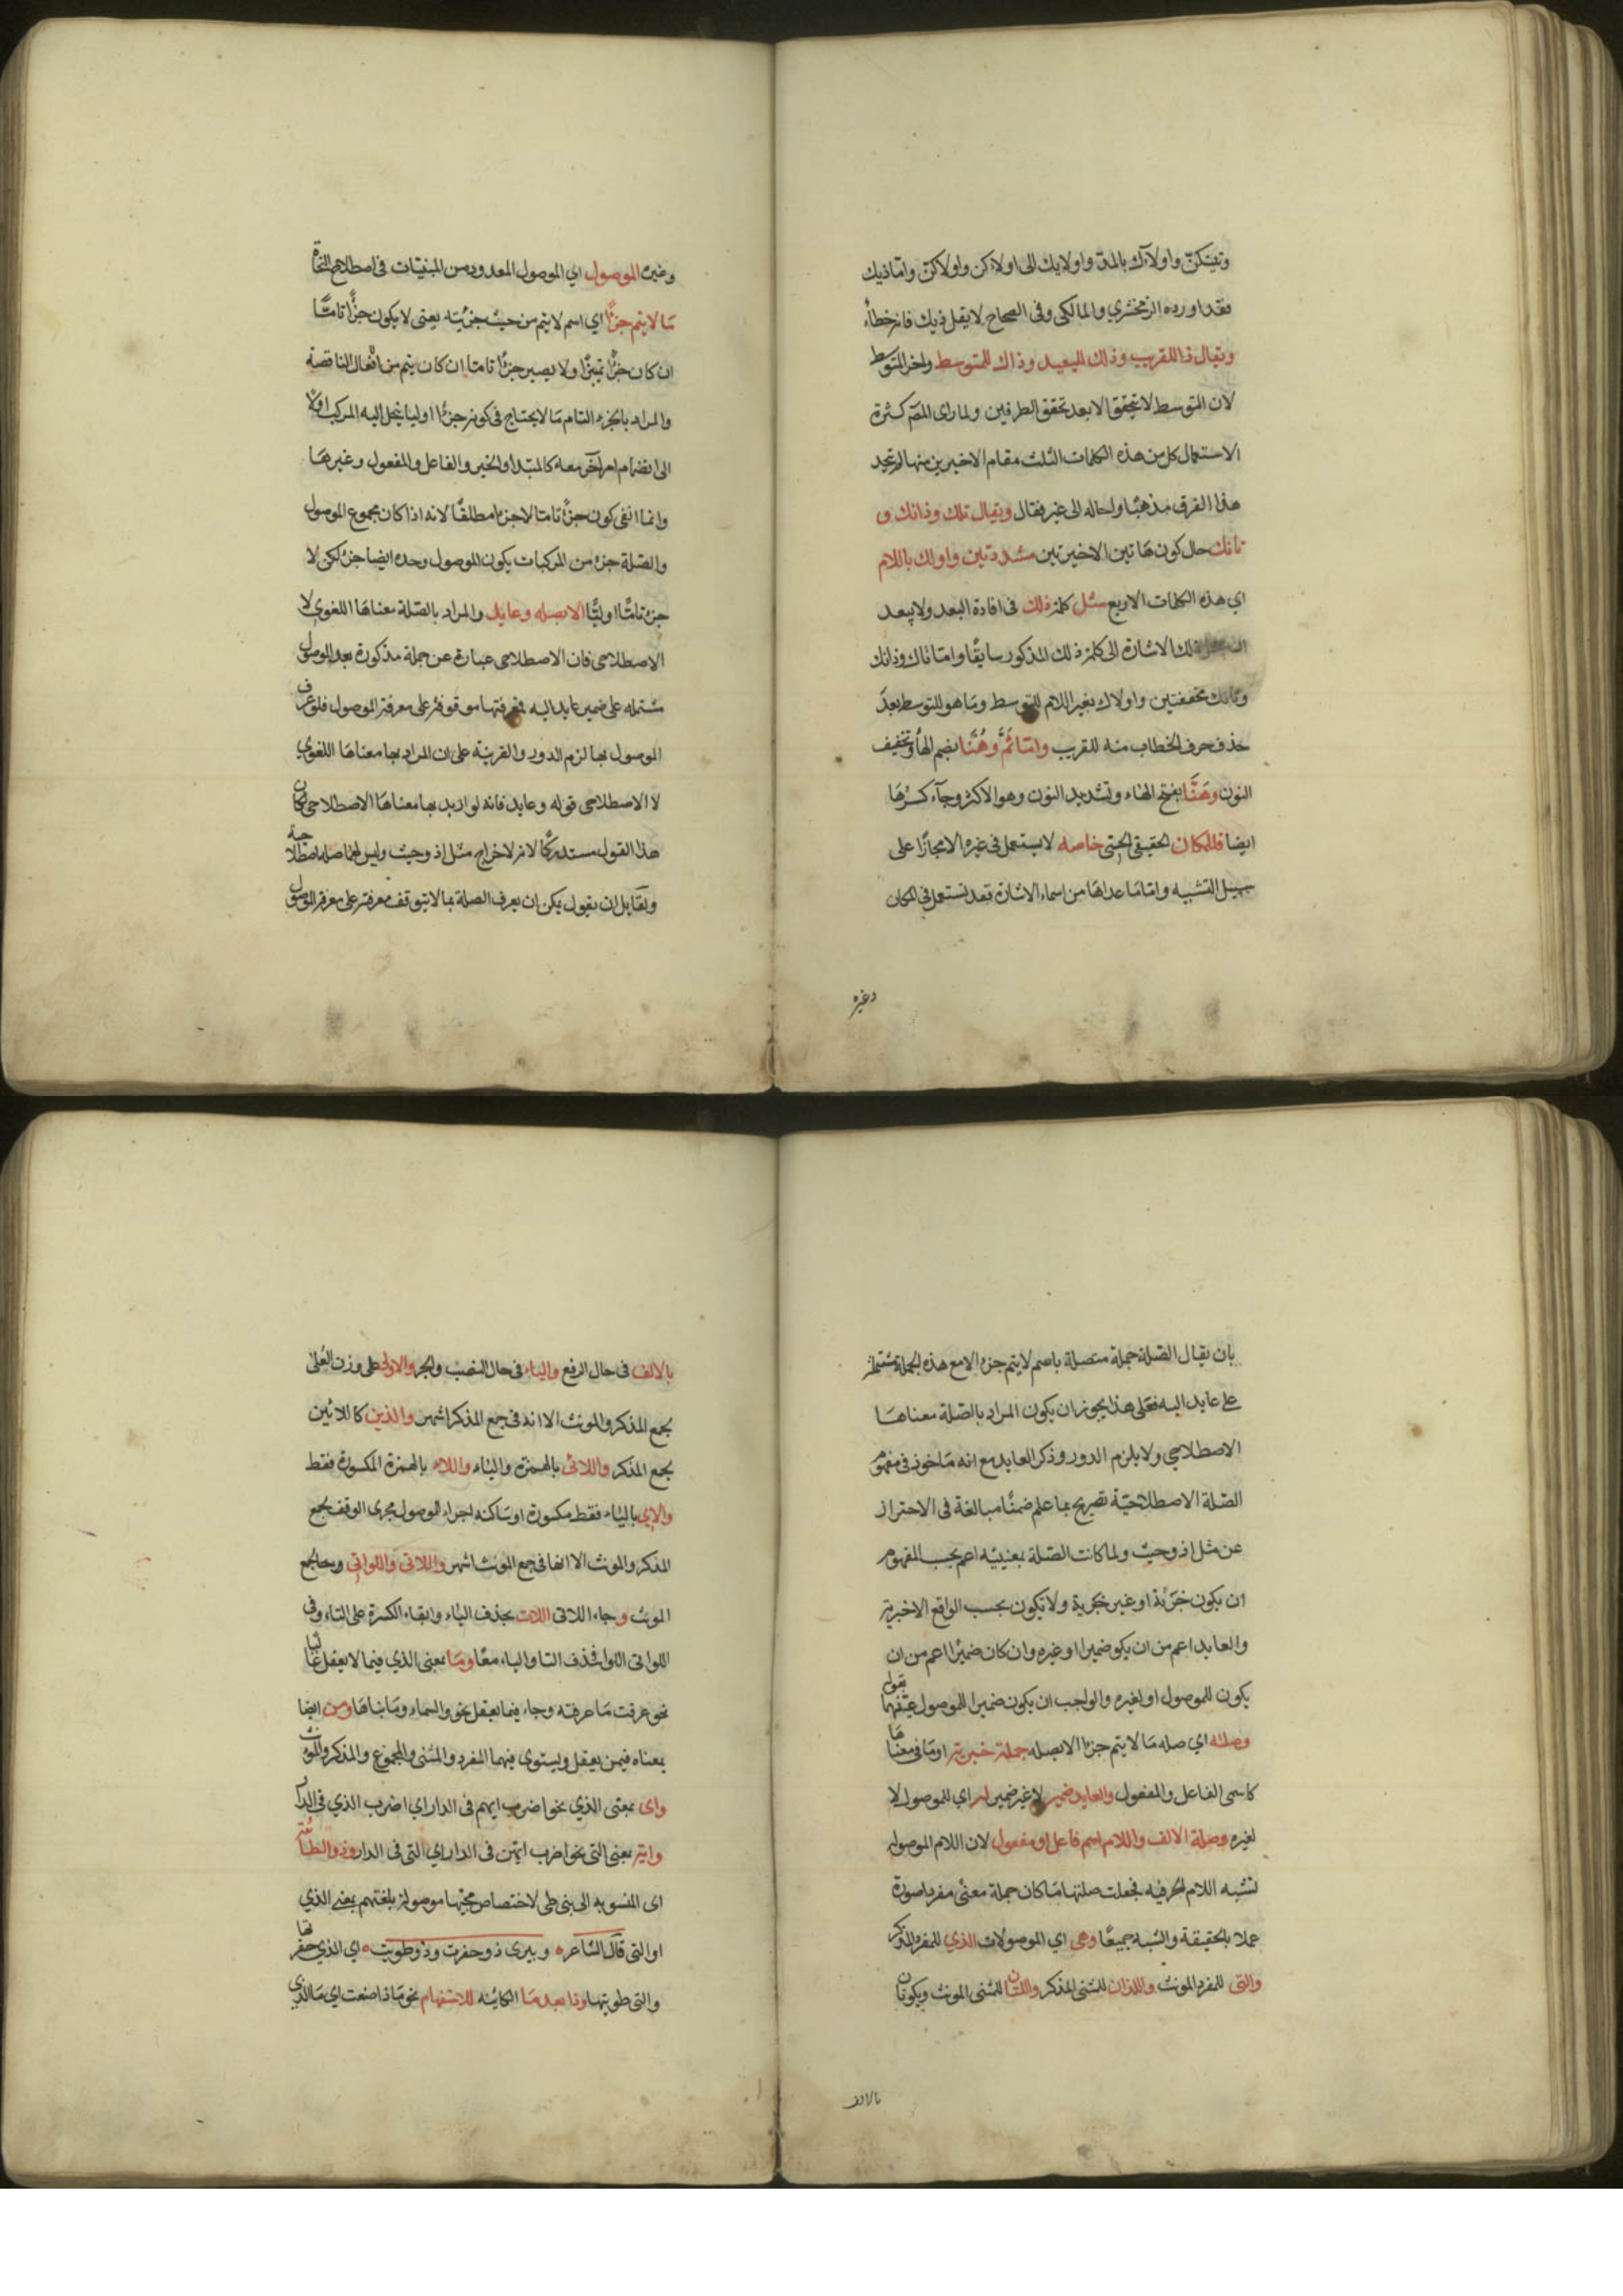 وتينكنّ واولآءك بالمدّ واولايك الى اولاءكن واولاكنّ وامّا ذيك
فقد اورده الزمخشري والمالكى وفى الصحاح لا يقل ذيك فانه خطأ
ويقال ذا للقريب وذلك للبعيد وذاك للمتوسط واخر المتوسط
لان المتوسط لا يتحقق الا بعد تحقق الطرفين ولما راى المصّ كثرة
الاستعمال كل من هذه الكلمات الثلث مقام الاخيرين منها لم يتخذ
هذا الفرق مذهبًا واحاله الى غيره فقال ويقال تلك وذانك و
تانك حال كون هاتين الاخيرتين مشددتين واولالك باللام
اي هذه الكلمات الاربع مثل كلمة ذلك فى افادة البعد ولا يبعد
ذلك الاشارة الى كلمة ذلك المذكور سابقًا وامّا تاك وذانك
وتانك مخففتين واولاك بغير اللام للمتوسط وما هو للمتوسط بعد
حذف حرف الخطاب منه للقريب وامّا ثَمَّ وهُنَا بضم الهاء وتخفيف
النون وهَنَّا بفتح الهاء وتشديد النون وهو الاكثر وجآء كسرها
ايضا فللمكان الحقيقى الحسّى خاصه لا يستعمل فى غيره الا مجازًا على
سبيل التشبيه وامّا ما عداها من اسماء الاشارة فقد تستعمل في المكان
وغيره
وغيره الموصول اي الموصول المعدود من المبنيّات فى اصطلاح النحاة
مَا لا يتم جزءًا اي اسم لا يتم من حيث جزئيّته يعنى لا يكون جزءًا تامًّا
ان كان جزءًا تميزًا ولا يصير جزءًا تاما ان كان يتم من افعال الناقصة
والمراد بالجزء التام مَا لا يحتاج فى كونه جزءًا اوليا ينحل اليه المركب اولا
الى انضمام امر آخر معه كالمبتدا والخبر والفاعل والمفعول وغيرهَا
وانما انفى كون جزءًا تاما لا جزءا مطلقًا لانه اذا كان مجموع الموصول
والصّلة جزء من المركبات يكون الموصول وحده ايضا جزء لكن لا
جزء تامًّا اوليًّا الا بصله وعايد والمراد بالصّلة معناها اللغوي لا
الاصطلاحى فان الاصطلاحى عبارة عن جملة مذكورة بعد الموصول
مشتمله على ضمير عايد اليه فمعرفتها موقوفة على معرفة الموصول فلو عرف
الموصول بها لزم الدور والقرينة على ان المراد بها معناها اللغوي
لا الاصطلاحى قوله وعايد فانه لو اريد بها معناها الاصطلاحى لكان
هذا القول مستدركًا لانه لاخراج مثل اذ وحيث وليس لهما صلة اصطلاحية
ولقايل ان يقول يمكن ان يعرف الصلة بما لا يتوقف معرفته على معرفة الموصول
بان يقال الصّلة جملة متصلة باسم لا يتم جزء الا مع هذه الجملة مشتملة
على عايد اليه فعلى هذا يجوز ان يكون المراد بالصّلة معناهَا
الاصطلاحي ولا يلزم الدور وذكر العايد مع انه مَاخوذ فى مفهوم
الصّلة الاصطلاحيّة تصريح بما علم ضمنًا مبالغة فى الاحتراز
عن مثل اذ وحيث ولما كانت الصّلة بمعنييه اعم بحسب المفهوم
ان يكون خبريّة او غير خبرية ولا تكون بحسب الواقع الا خبرية
والعايد اعم من ان يكو ضميرا او غيره وان كان ضميرًا اعم من ان
يكون للموصول او لغيره والواجب ان يكون ضميرا للموصول عيّنهما بقوله
وصلته اي صله مَا لا يتم جزءا الا بصله جملة خبرية او مَا فى معناهَا
كاسمى الفاعل والمفعول والعايد ضمير لا غير ضمير له اي للموصول لا
لغيره وصلة الالف واللام اسم فاعل او مفعول لان اللام الموصوله
تشبه اللام الحرفيه فجعلت صلتها مَا كان جملة معنى مفردا صورة
عملا بالحقيقة والشبه جميعًا وهى اي الموصولات الذي للمفرد المذكر
والتى للمفرد المونث واللذان للمثنى المذكر واللتان للمثنى المونث ويكونان
بالالف
بالالف فى حال الرفع والياء فى حال النصب والجر والاولى على وزن العُلى
لجمع المذكر والمونث الا انه فى جمع المذكر اشهر والذين كاللائين
لجمع المذكر واللائى بالهمزة والياء واللاء بالهمزة المكسورة فقط
واللاي بالياء فقط مكسورة او ساكنه لجراء الموصول مجرى الوقف لجمع
المذكر والمونث الا انها فى جمع المونث اشهر واللاتى واللواتى وهما لجمع
المونث وجاء اللاتى اللات بحذف الياء وابقاء الكسرة على التاء وفى
اللواتى اللوا بحذف التا والياء معًا ومَا بمعنى الذي فيما لا يعقل غالبا
نحو عرفت مَا عرفته وجاء فيما يعقل نحو والسماء ومَا بناهَا ومن ايضا
بمعناه فيمن يعقل ويستوى فيهما المفرد والمثنى والمجموع والمذكر والمونث
واى بمعنى الذي نحو اضرب ايهم فى الدار اي اضرب الذي فى الدار
واية بمعنى التى نحو اضرب ايتهن فى الدار اي التى فى الدار وذو الطائية
اى المنسوبه الى بنى طى لاختصاص مجيئها موصولة بلغتهم بمعنى الذي
او التى قال الشاعره وبيرى ذو حفرت وذو طويت ه اي الذي حفرتها
والتى طويتها وذا بعد مَا الكائنه للاستفهام نحو مَا ذا صنعت اي مَا الذي